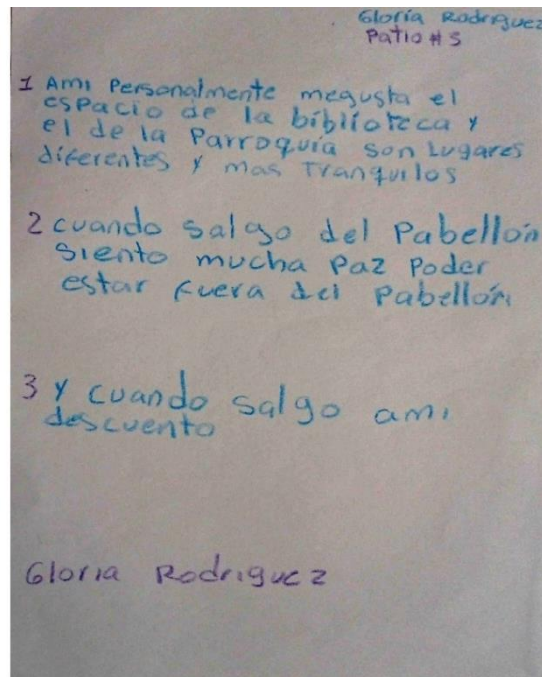 Gloria Rodriguez
Patio # 5
1 Ami Personalmente megusta el
espacio de la biblioteca y
el de la Parroquia son Lugares
diferentes y mas Tranquilos
2 cuando salgo del Pabellón
siento mucha Paz Poder
estar fuera del Pabellón
3 y cuando salgo ami
descuento
Gloria Rodriguez